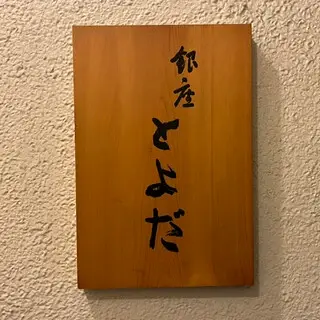 銀座
とよだ